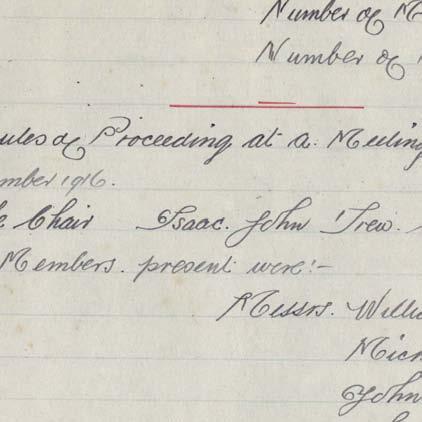 Number of M
Number of
ules of Proceeding at a Meeting
mber 1916.
e Chair Isaac. John Trew.
Members. present were:-
Messrs. Willi
Mich
John